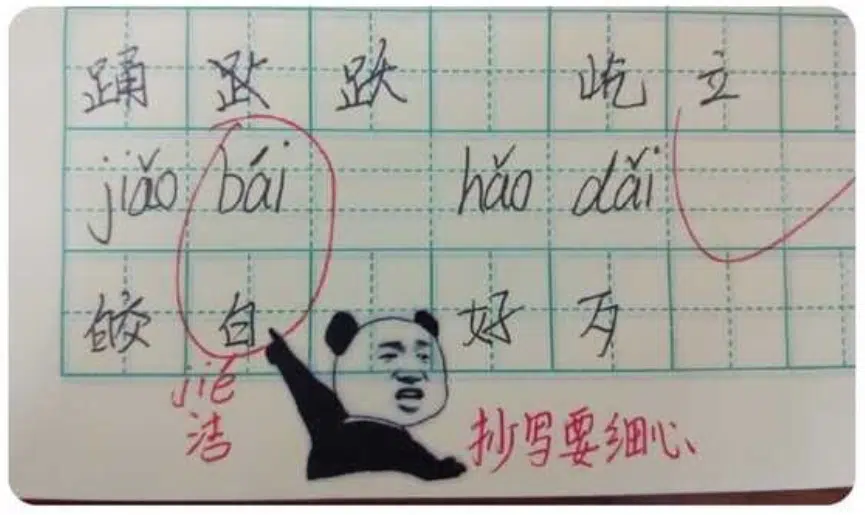 踊跃跃 屹立
jiǎo bái hǎo dǎi
皎白 好歹
jié
洁
抄写要细心、